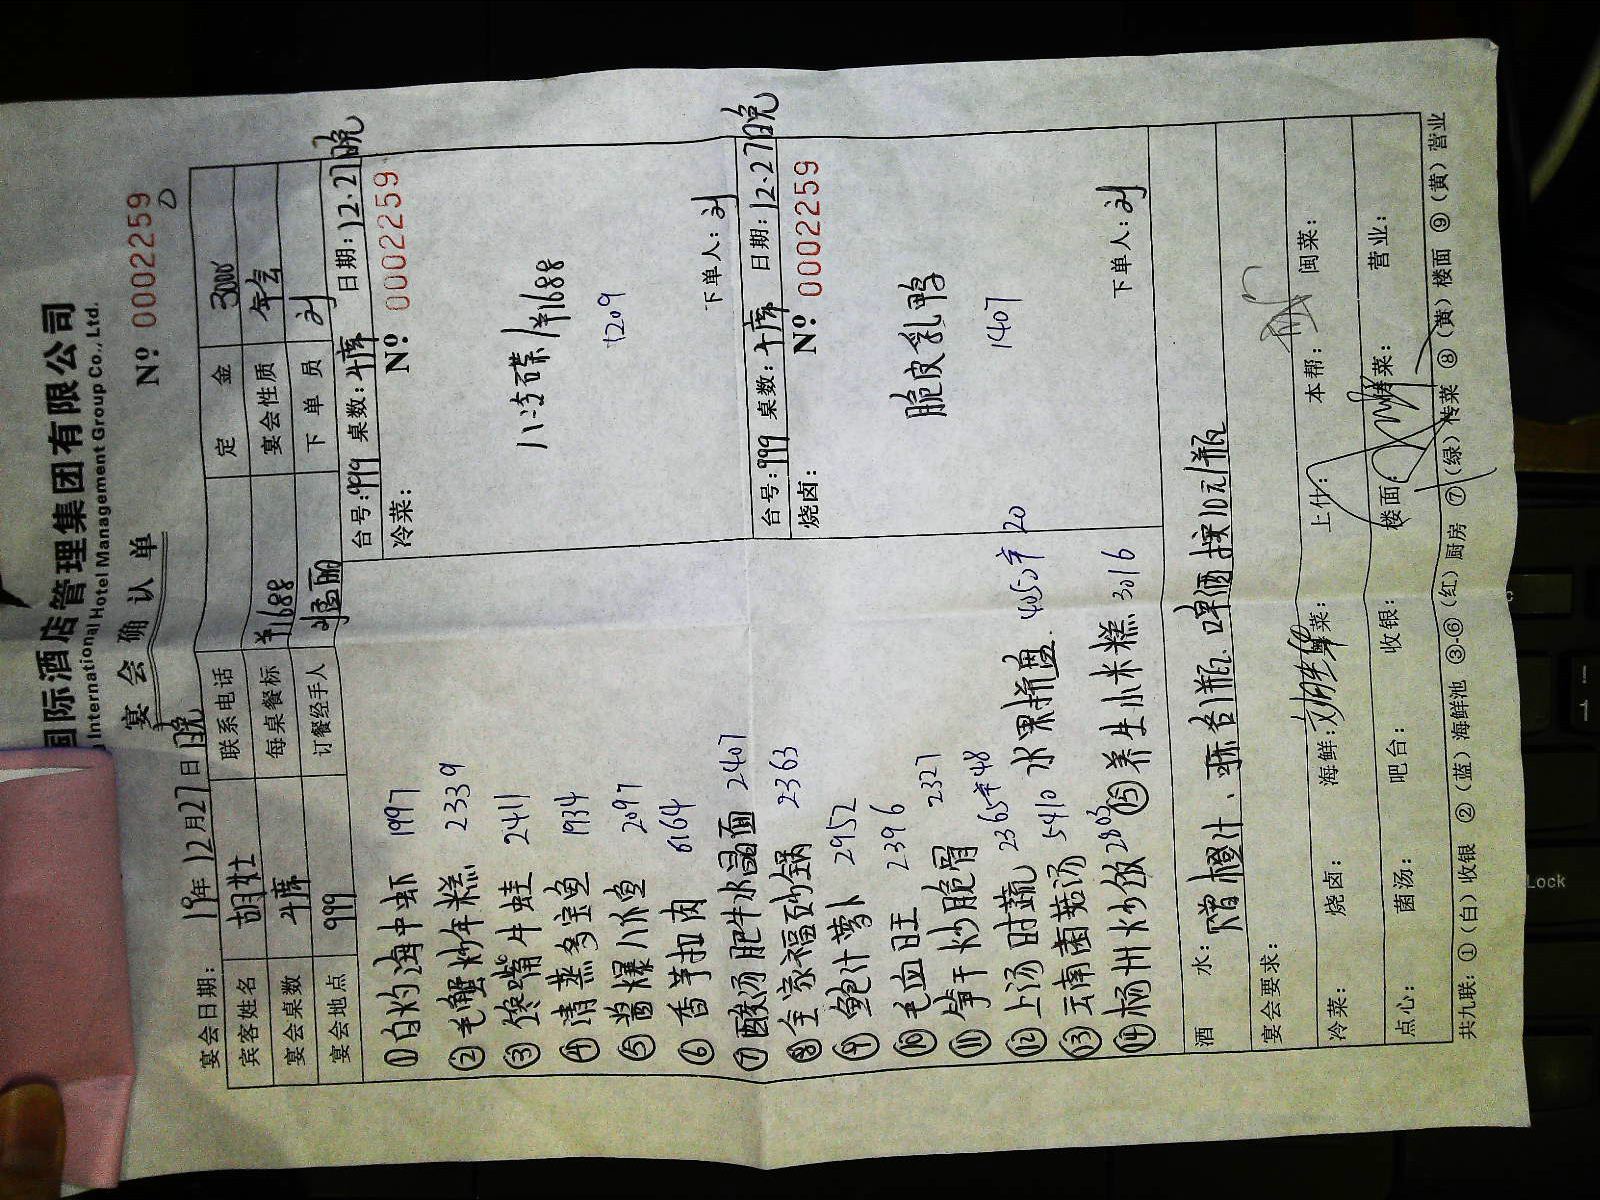 国际酒店管理集团有限公司
International Hotel Management Group Co., Ltd.
宴会确认单
Nº 0002259
宴会日期：19年12月27日晚
宾客姓名 胡壮 联系电话 定金 3000
宴会桌数 4席 每桌餐标 ¥1688 宴会性质 年会
宴会地点 999 订餐经手人 下单员 刘
台号：999 桌数：4席 日期：12.27晚
冷菜： Nº 0002259
八冷碟/¥1688
1209
下单人：刘
台号：999 桌数：4席 日期：12.27晚
烧卤： Nº 0002259
脆皮乳鸭
1407
下单人：刘
①白灼海中虾 1997
②毛蟹炒年糕 2339
③馋嘴牛蛙 2411
④清蒸多宝鱼 1934
⑤酱爆八爪鱼 2097
⑥香芋扣肉 6164
⑦酸汤肥牛水晶面 2407
⑧全家福砂锅 2363
⑨鲍汁萝卜 2952
⑩毛血旺 2396
⑪笋干炒脆骨 2327
⑫上汤时蔬 2365#48 水果拼盘 4050# 20
⑬云南菌菇汤 5410
⑭杨州炒饭 2803 ⑮养生小米糕 3016
酒水：赠橙汁、雪碧各1瓶.啤酒按10元/瓶
宴会要求：
冷菜： 烧卤： 海鲜： 粤菜： 上什： 本帮： 闽菜：
点心： 菌汤： 吧台： 收银： 楼面： 传菜： 营业：
共九联：①（白）收银 ②（蓝）海鲜池 ③-⑥（红）厨房 ⑦（绿）传菜 ⑧（黄）楼面 ⑨（黄）营业
Lock